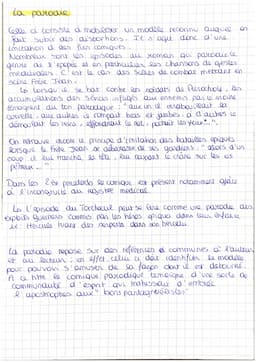 La parodie
Celle ci consiste à mobiliser un modèle reconnu auquel on
fait subir des distortions. Il s'agit donc d'une
imitation à des fins comiques.
Nombreux sont les épisodes du roman qui parodie le
genre de l'épopée et en particulier les chansons de gestes
médiévales. C'est le cas des scènes de combat mettant en
scène Frère Jean.
Lorsqu'il se bat contre les soldats de Picrochole, les
accumulations des sévices infligés aux ennemis par le moine
témoignent du ton parodique : "aux uns il écrabouillait la
cervelle, aux autres il rompait bras et jambes, à d'autres il
démoulait les reins, effondrait le nez, pochait les yeux".
On retrouve encore le principe d'imitation des batailles épiques
lorsque le Frère Jean se débarrasse de ses gardiens : "alors d'un
coup, il lui trancha la tête, lui coupant le crâne sur les os
pétreux ..."
Dans les 2 éts procédés le comique est présent notamment grâce
à l'incongruité du registre médical.
L'épisode du Torchecul peut se lire comme une parodie des
exploits guerriers commis par les héros épique dans leur enfance
Hercule tuant des serpents dans son berceau.
La parodie repose sur des références communes à l'auteur
et au lecteur : en effet, celui ci doit identifier le modèle
pour pouvoir s'amuser de la façon dont il est détourné.
A ce titre le comique parodique témoigne d'une sorte de
communauté d'esprit qui
l'apostrophe aux "bons pantagruélistes"